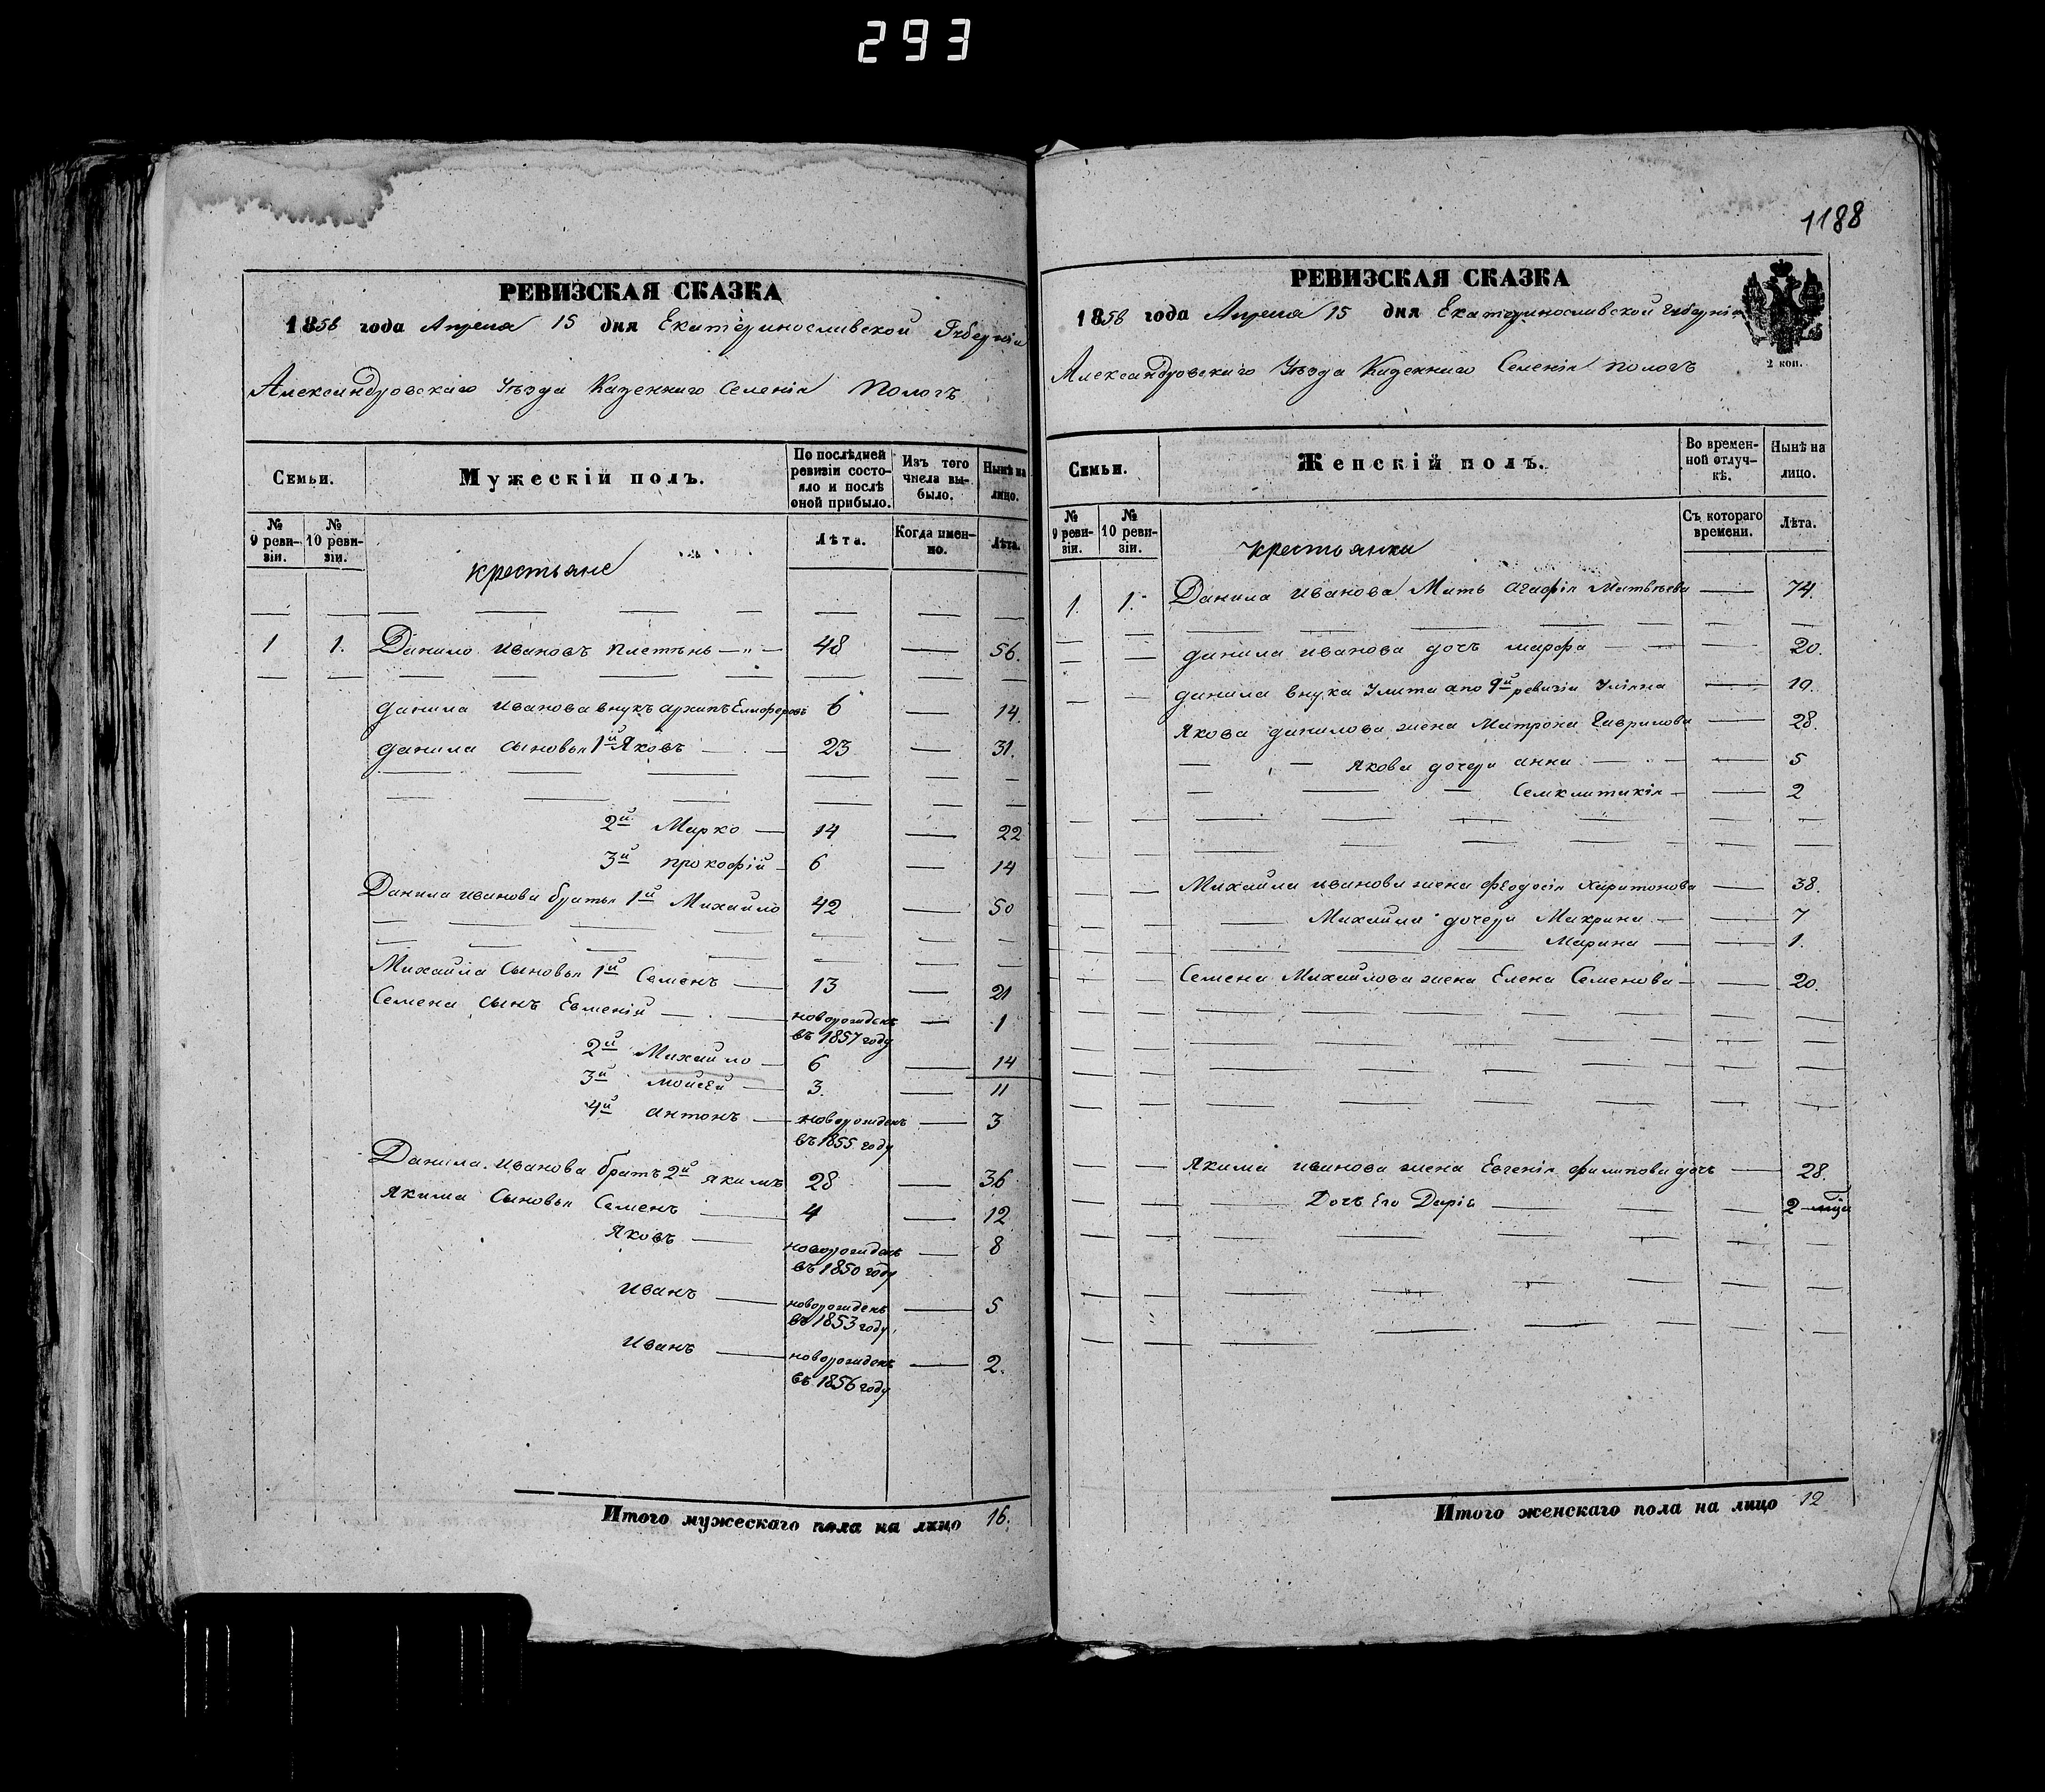 293
1188
РЕВИЗСКАЯ СКАЗКА
1858 года Апреля 15 дня Екатеринославской Губерніи
Александровскаго Уѣзда Казеннаго Селенія Пологъ
Семьи.
Мужескій полъ.
По послѣдней ревизіи состояло и послѣ оной прибыло.
Изъ того числа выбыло.
Нынѣ на лицо.
№ 9 ревизіи.
№ 10 ревизіи.
крестьяне
Лѣта.
Когда именно.
Лѣта.
1 1. Данило Ивановъ Плетень — 48 — 56.
Данила Иванова внукъ Архипъ Елеферовъ 6 — 14.
Данила сыновья 1й Яковъ — 23 — 31.
2й Марко — 14 — 22
3й прокофій — 6 — 14
Данила Иванова братья 1й Михайло 42 — 50
Михайла Сыновья 1й Семенъ — 13 — 21
Семена сынъ Евмений — новорожденъ — 1
въ 1857 году
2й Михайло — 6 — 14
3й Мойсей — 3. — 11
4й антонъ — новорожденъ — 3
въ 1855 году
Данила Иванова братъ 2й якимъ 28 — 36
Якима Сыновья Семенъ — 4 — 12
Яковъ — новорожденъ — 8
въ 1850 году
Иванъ — новорожденъ — 5
въ 1853 году
Иванъ — новорожденъ — 2.
въ 1856 году
Итого мужескаго пола на лицо 16.
РЕВИЗСКАЯ СКАЗКА
1858 года Апреля 15 дня Екатеринославской Губерніи
2 коп.
Александровскаго Уѣзда Казеннаго Селенія Пологъ
Семьи.
Женскій полъ.
Во временной отлучкѣ.
Нынѣ на лицо.
№ 9 ревизіи.
№ 10 ревизіи.
крестьянки
Съ котораго времени.
Лѣта.
1. 1. Данила Иванова Мать Агафія Матвѣева — 74.
Данила Иванова дочъ марфа — 20.
Данила внука Улита а по 9й ревизіи Уліяна — 10.
Якова Данилова жена Матрона Гаврилова — 28.
Якова дочери анна — 5
Семклитикія — 2
Михайла Иванова жена Феодосія Харитонова — 38.
Михайла дочери Макрина — 7
Марина — 1.
Семена Михайлова жена Елена Семенова — 20.
Якима Иванова жена Евгенія Филипова дочь — 28.
Дочъ Его Дарія — 2 мца
Итого женскаго пола на лицо 12